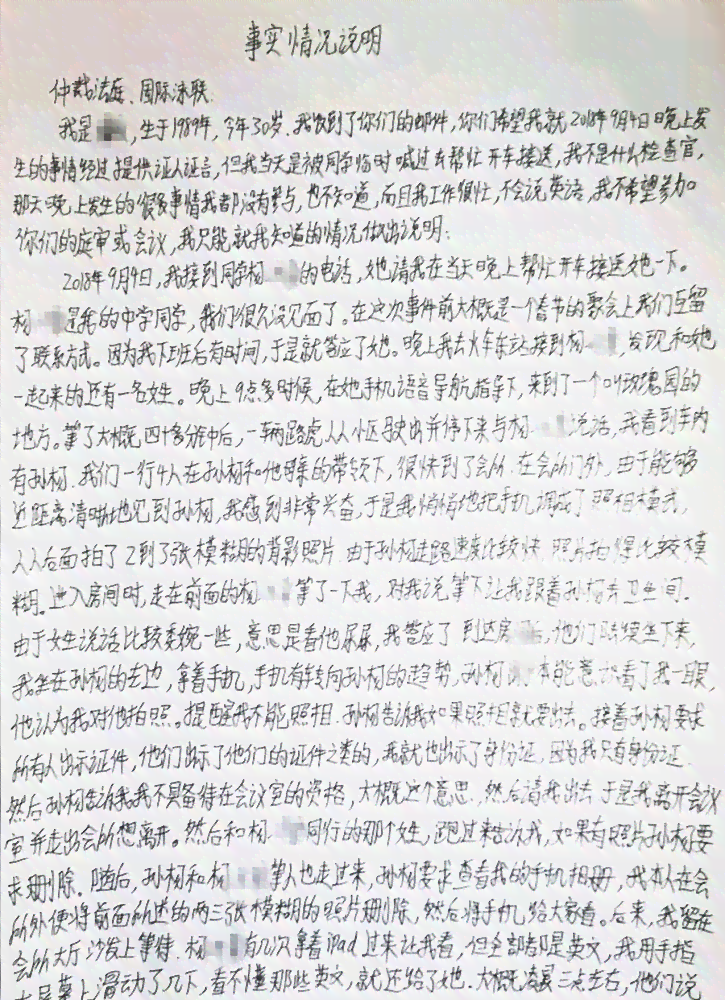 事实情况说明
仲裁法庭、国际泳联
我是 ，生于1989年，今年30岁。我收到了你们的邮件，你们希望我就2018年9月4日晚上发
生的事情经过提供证人证言，但我当天是被同学临时喊过去帮忙开车接送，我不是什么检查官，
那天晚上发生的很多事情我都没有参与，也不知道，而且我工作很忙，不会说英语，我不希望参加
你们的庭审或会议，我只能就我知道的情况做出说明：
2018年9月4日，我接到同学杨 的电话，她请我在当天晚上帮忙开车接送她一下。
杨 是我的中学同学，我们很久没见面了。在这次事件前大概是一个春节的聚会上我们互留
了联系方式。因为我下班后有时间，于是就答应了她。晚上我去火车东站接到杨 ，发现和她
一起来的还有一名女生。晚上9点多时候，在她手机语音导航指导下，来到了一个叫玫瑰园的
地方。等了大概四十多分钟后，一辆路虎从小区驶出并停下来与杨 说话，我看到车内
有孙杨。我们一行4人在孙杨和他母亲的带领下，很快到了会所。在会所门外，由于能够
近距离清晰地见到孙杨，我感到非常兴奋，于是我悄悄地把手机调成了照相模式，
从后面拍了2到了3张模糊的背影照片。由于孙杨走路速度比较快，照片拍得比较模
糊。进入房间时，走在前面的杨 等了一下我，对我说等下让我跟着孙杨去卫生间。
由于女生说话比较委婉一些，意思是看他尿尿，我答应了。到达房 后，他们陆续坐下来，
我坐在孙杨的左边，拿着手机，手机有转向孙杨的趋势，孙杨 本能意识看了我一眼，
他认为我对他拍照。提醒我不能照相。孙杨告诉我如果照相就要出去。接着孙杨要求
所有人出示证件，他们出示了他们的证件之类的，我就也出示了身份证，因为我只有身份证。
然后孙杨告诉我我不具备待在会议室的资格，大概这个意思，然后请我出去。于是我离开会议
室并走出会所想离开。然后和杨 同行的那个女生，跑过来告诉我，如果有照片孙杨要
求删除。随后，孙杨和杨 等人也走过来，孙杨要求查看我的手机相册，我本人在会
所外便将前面所述的两三张模糊的照片删除，然后将手机给大家看。后来，我留在
会所大厅沙发上等待。杨 有几次拿着ipad过来让我看，但全部都是英文，我用手指
在屏幕上滑动了几下，看不懂那些英文，就还给了她。大概凌晨三点左右，他们说